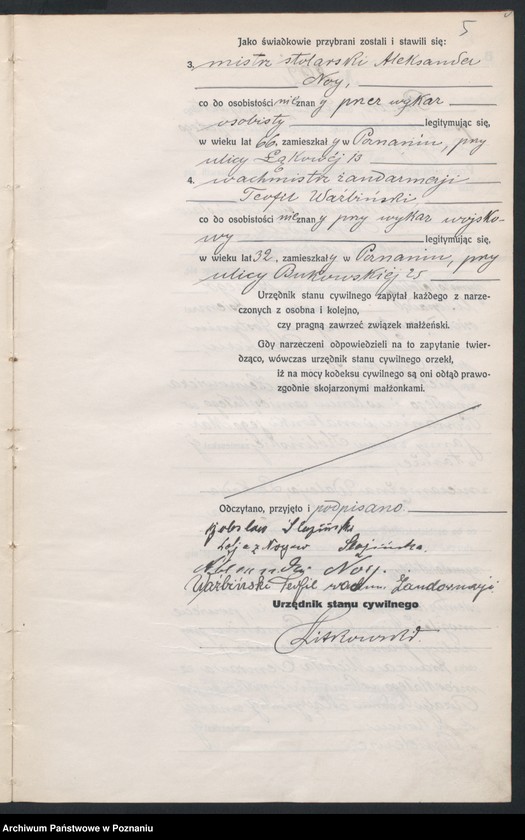 5
Jako świadkowie przybrani zostali i stawili się:
3. mistrz stolarski Aleksander
Noy,
co do osobistości nieznany przez wykaz
osobisty legitymując się,
w wieku lat 66, zamieszkały w Poznaniu, przy
ulicy Łąkowéj 13
4. wachmistrz żandarmerji
Teofil Waśbiński,
co do osobistości nieznany przy wykaz wojsko-
wy legitymując się,
w wieku lat 32, zamieszkały w Poznaniu, przy
ulicy Bukowskiéj 25
Urzędnik stanu cywilnego zapytał każdego z narze-
czonych z osobna i kolejno,
czy pragną zawrzeć związek małżeński.
Gdy narzeczeni odpowiedzieli na to zapytanie twier-
dząco, wówczas urzędnik stanu cywilnego orzekł,
iż na mocy kodeksu cywilnego są oni odtąd prawo-
zgodnie skojarzonymi małżonkami.
Odczytano, przyjęto i podpisano
z Noyów
Noy.
Waśbiński Teofil wachm. Żandarmerji
Urzędnik stanu cywilnego
Witkowski
Archiwum Państwowe w Poznaniu